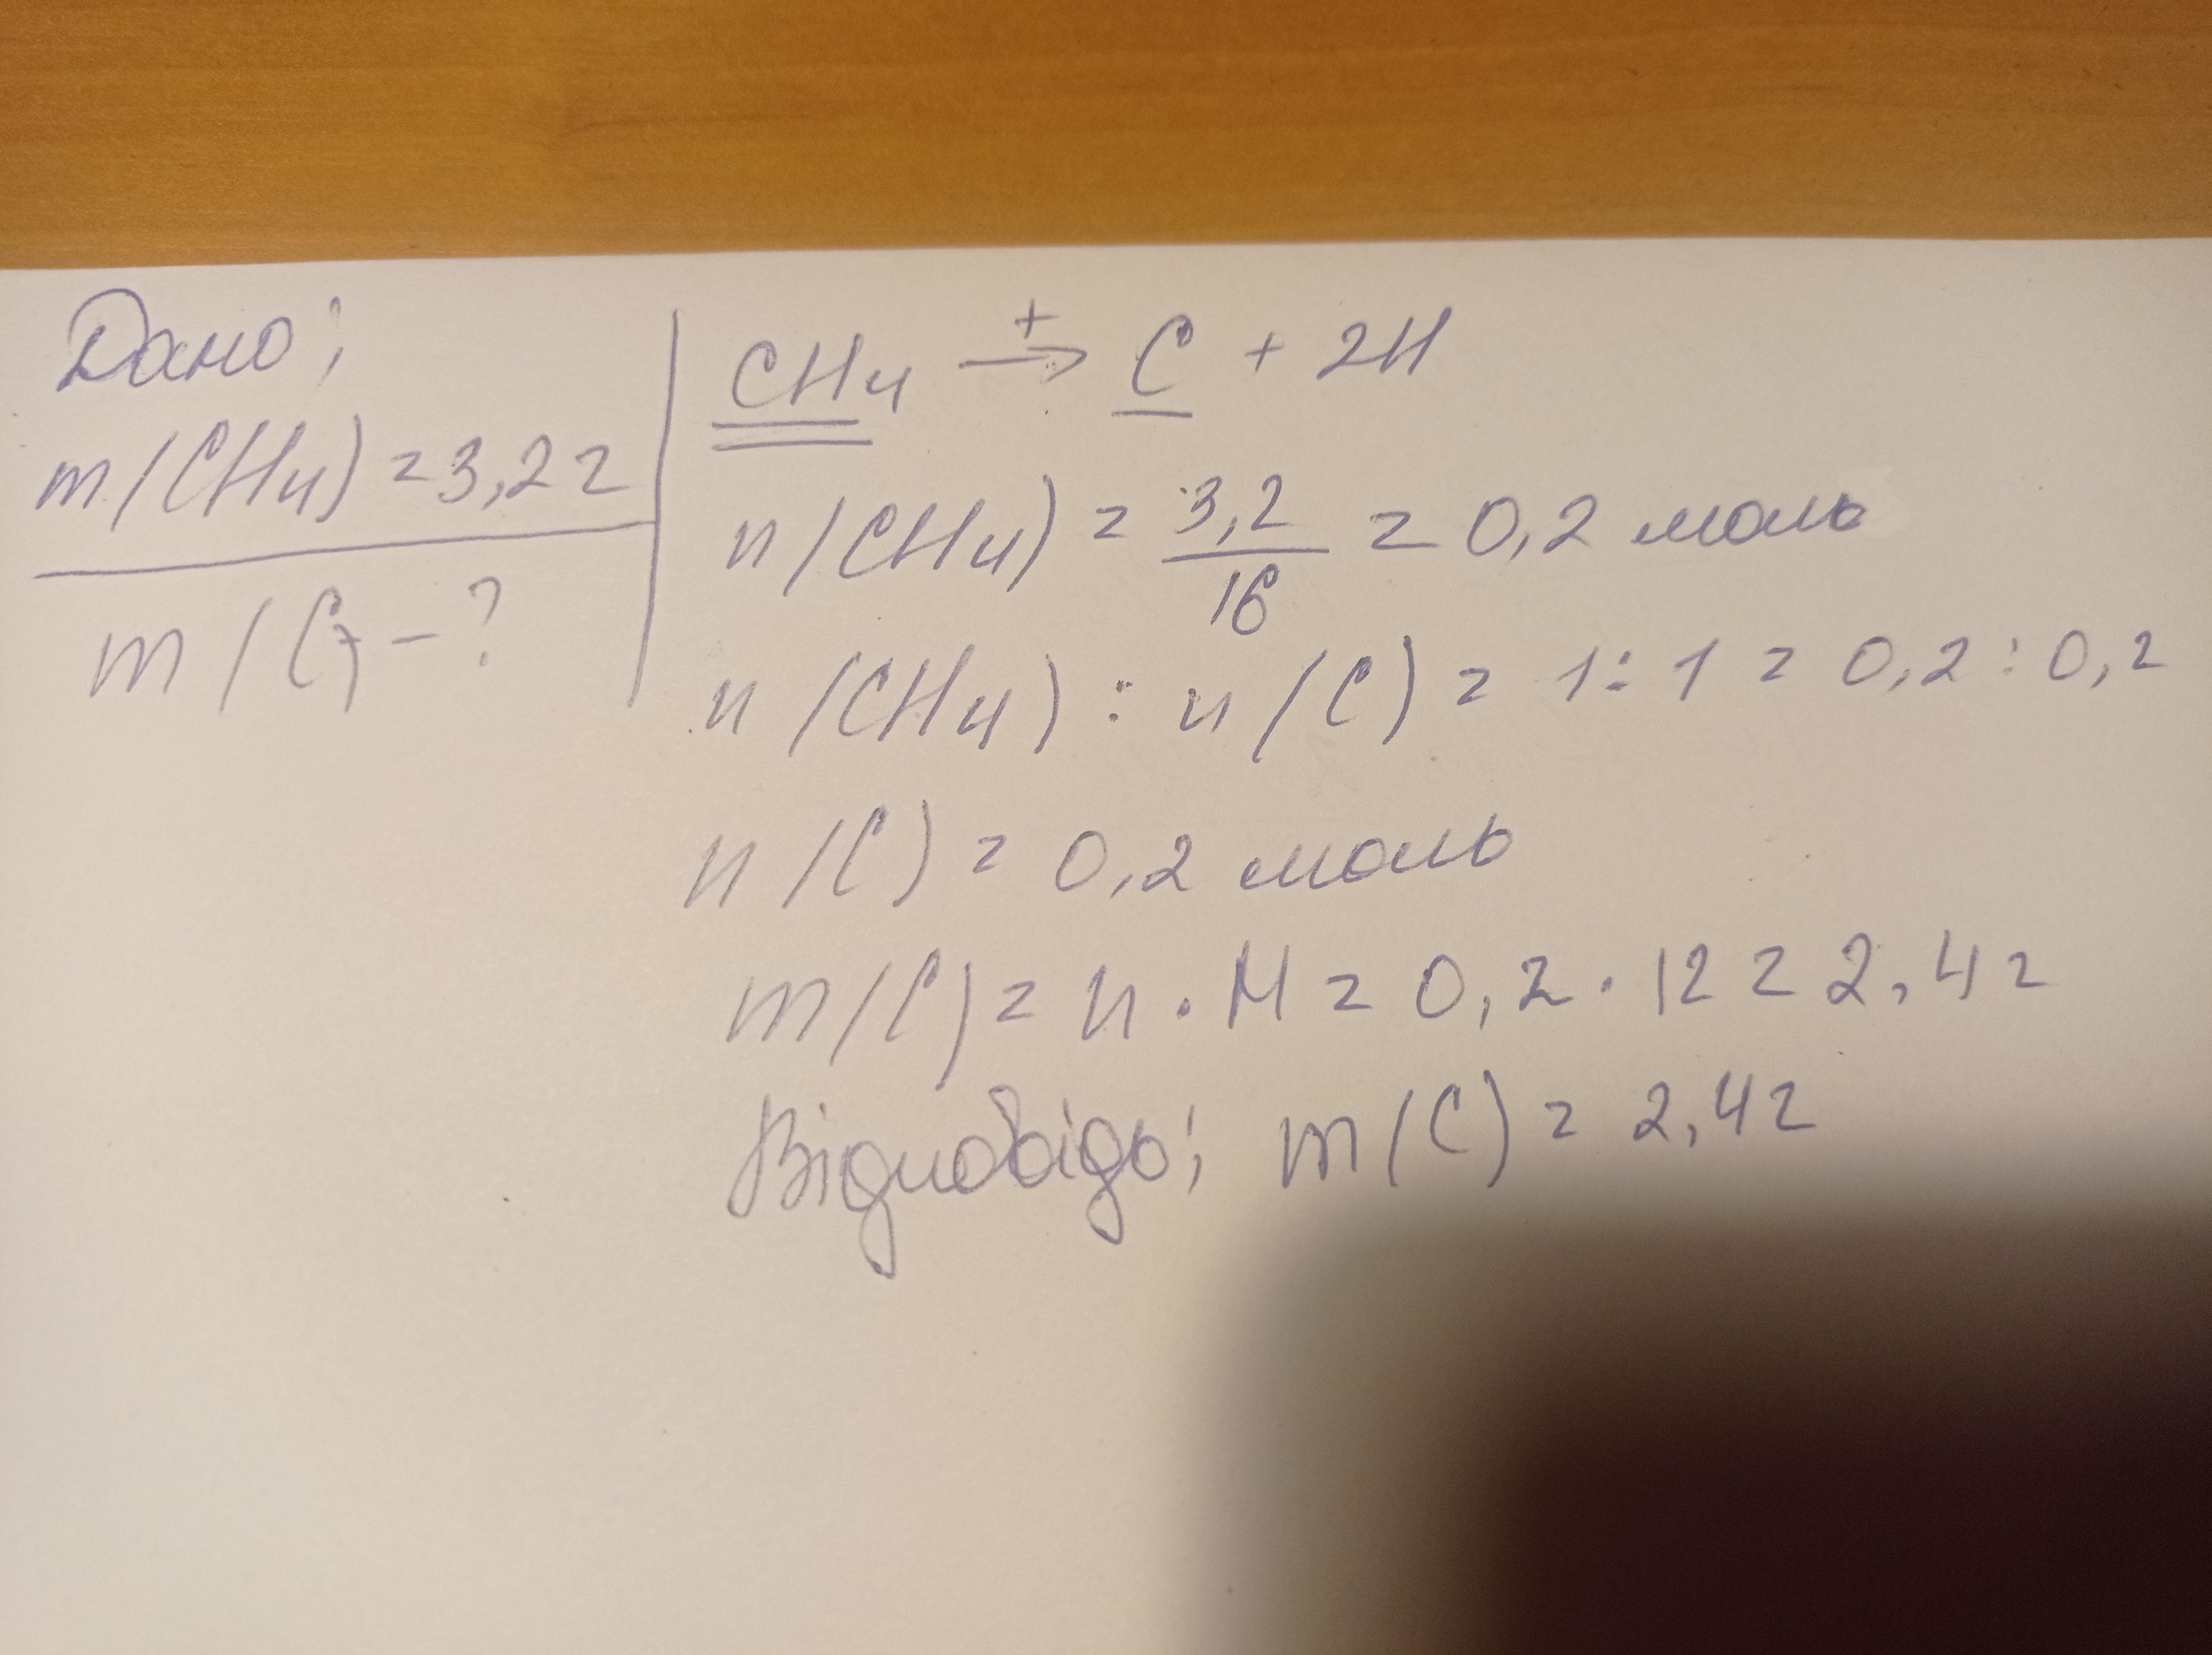 Дано:
m(CH4) = 3,2г
m(C) - ?
CH4 t→ C + 2H
n(CH4) = 3,2/16 = 0,2 моль
n(CH4) : n(C) = 1:1 = 0,2:0,2
n(C) = 0,2 моль
m(C) = n · M = 0,2 · 12 = 2,4г
Відповідь: m(C) = 2,4г